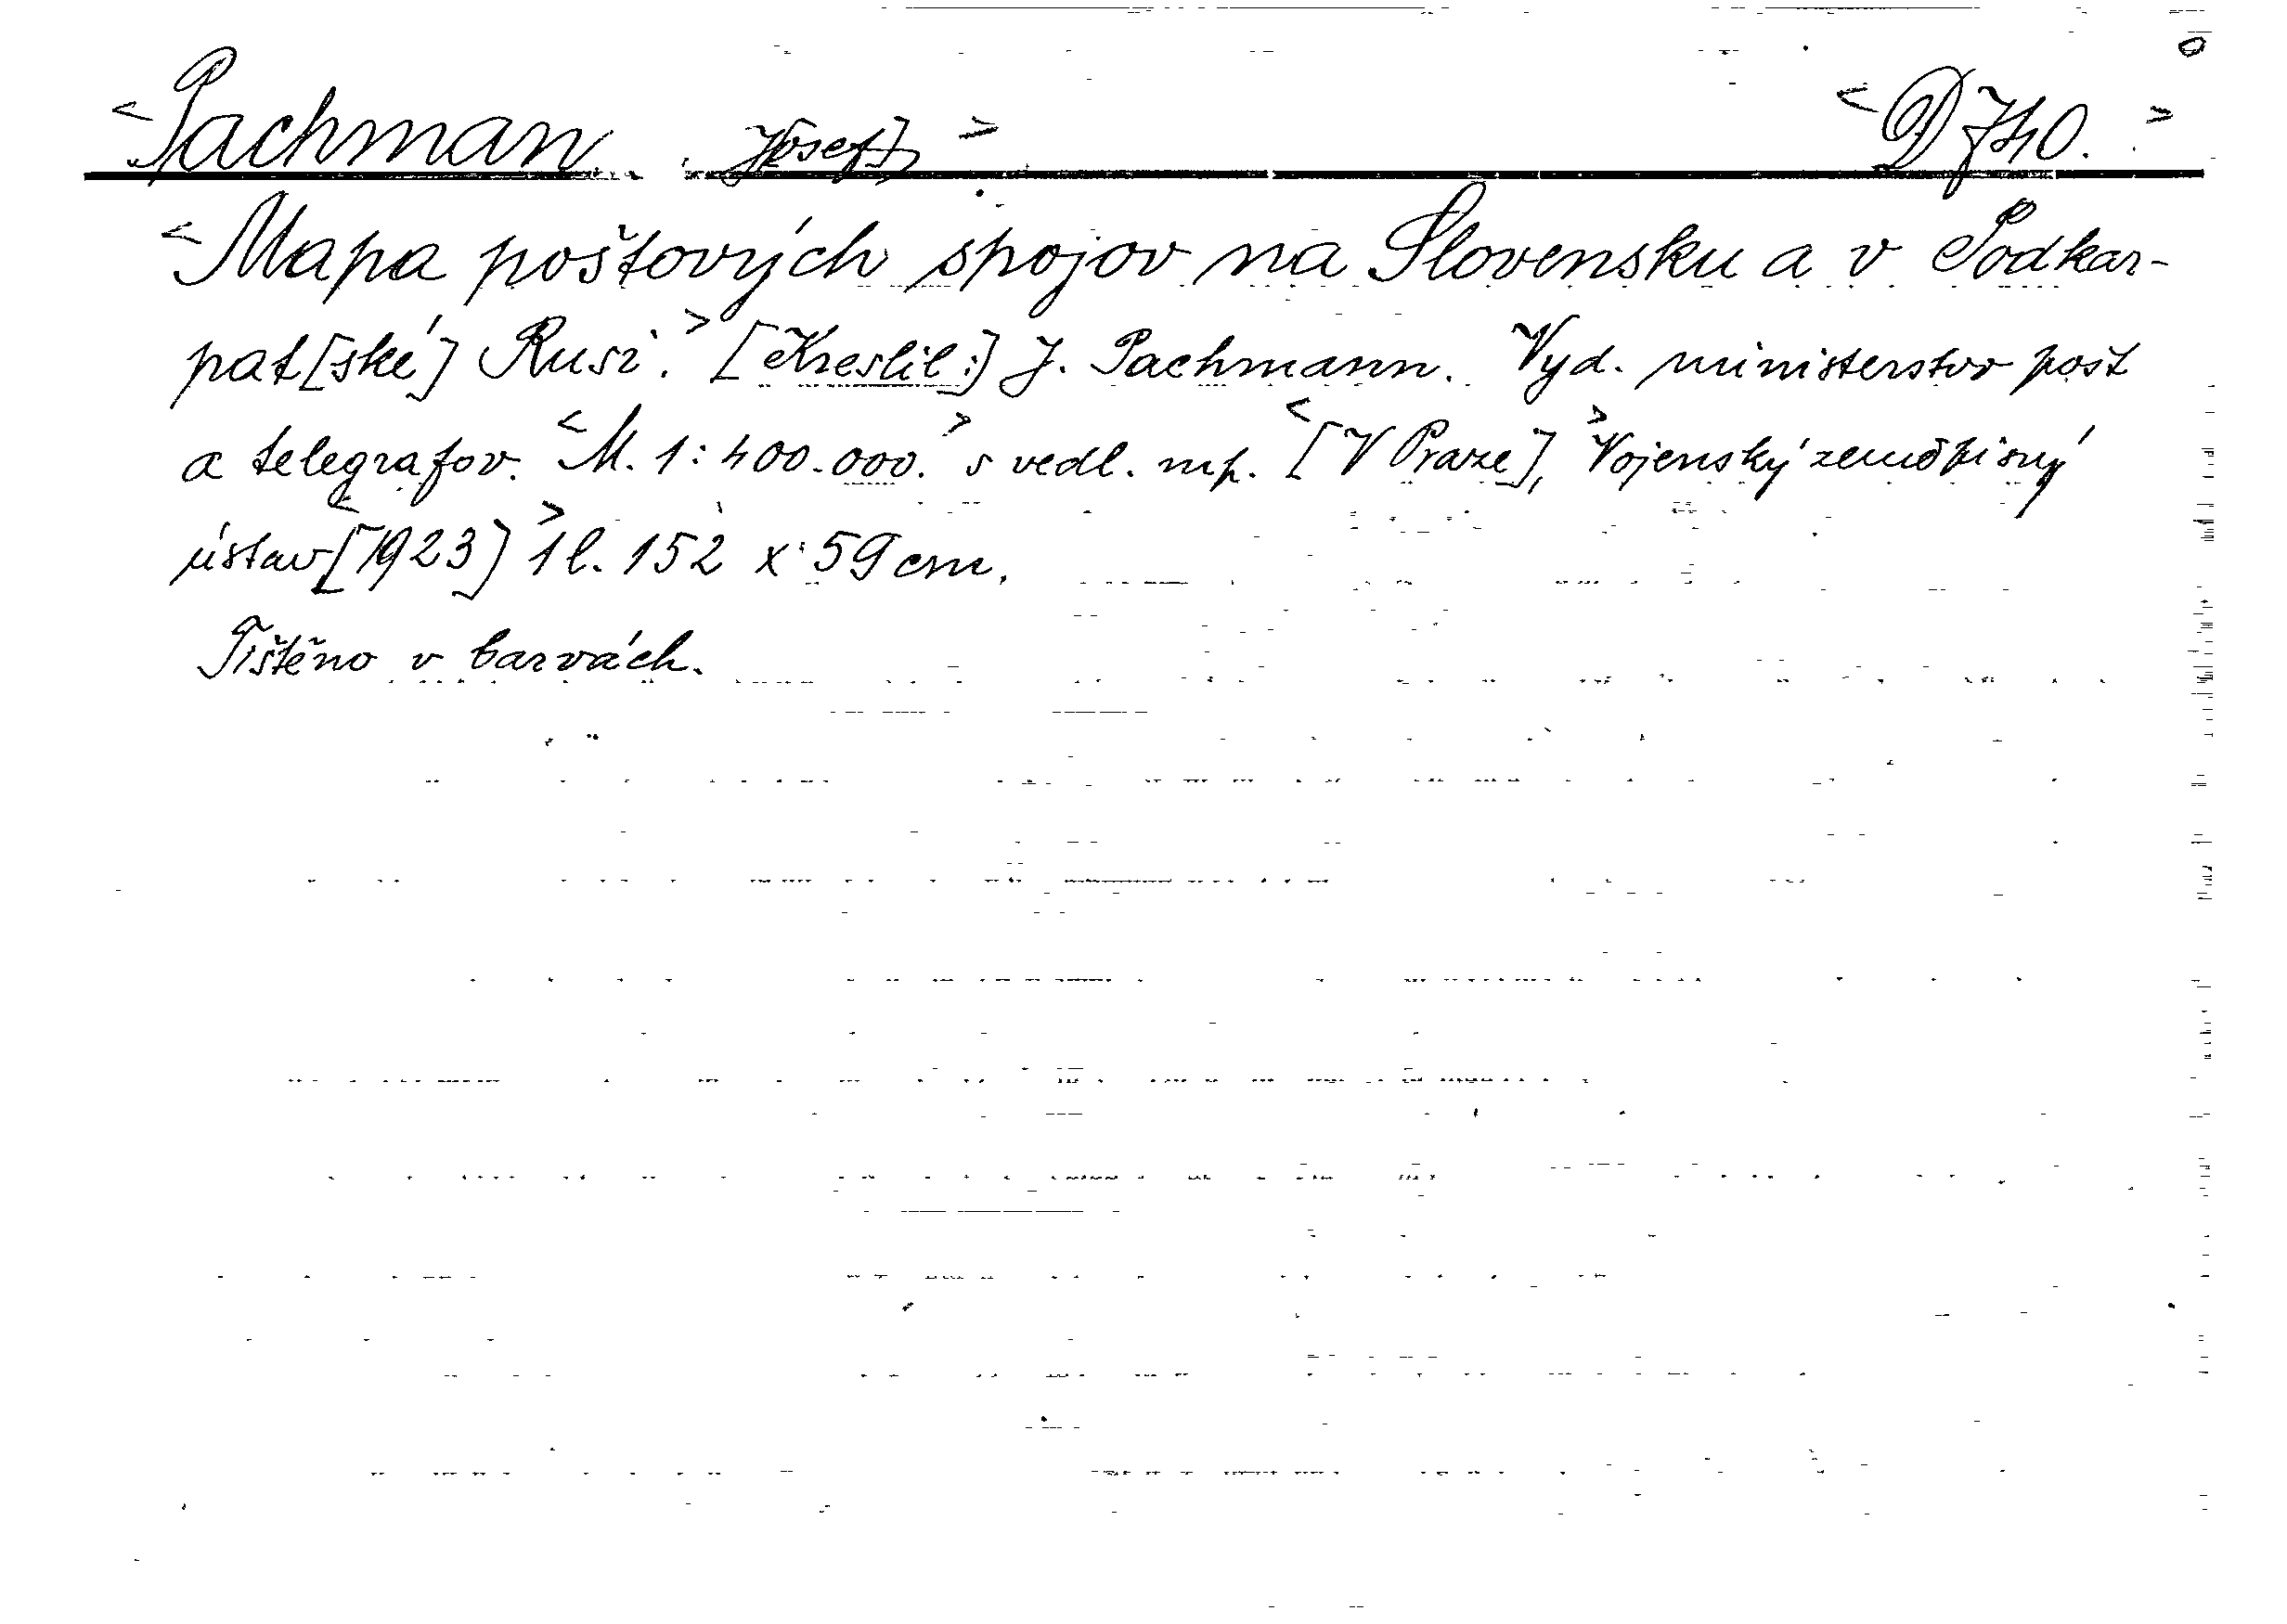 <Pachman Josef> <D 740.>
<Mapa poštových spojov na Slovensku a v Podkar-
pat[ské] Rusi.> [Kreslil:] J. Pachmann. Vyd. ministerstvo pošt
a telegrafov. <M. 1:400.000.> s vedl. mp. <[V Praze],> Vojenský zeměpisný
ústav <[1923]> 1 l. 152 x 59 cm.
Tištěno v barvách.